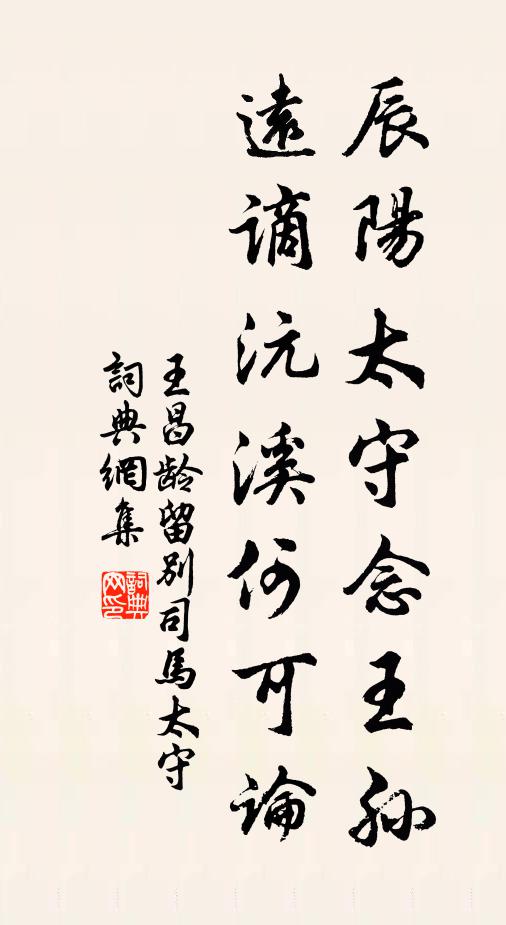 辰陽太守念王孫
遠謫沅溪何可論
王昌齡留別司馬太守
詞典網集
詞典
网印